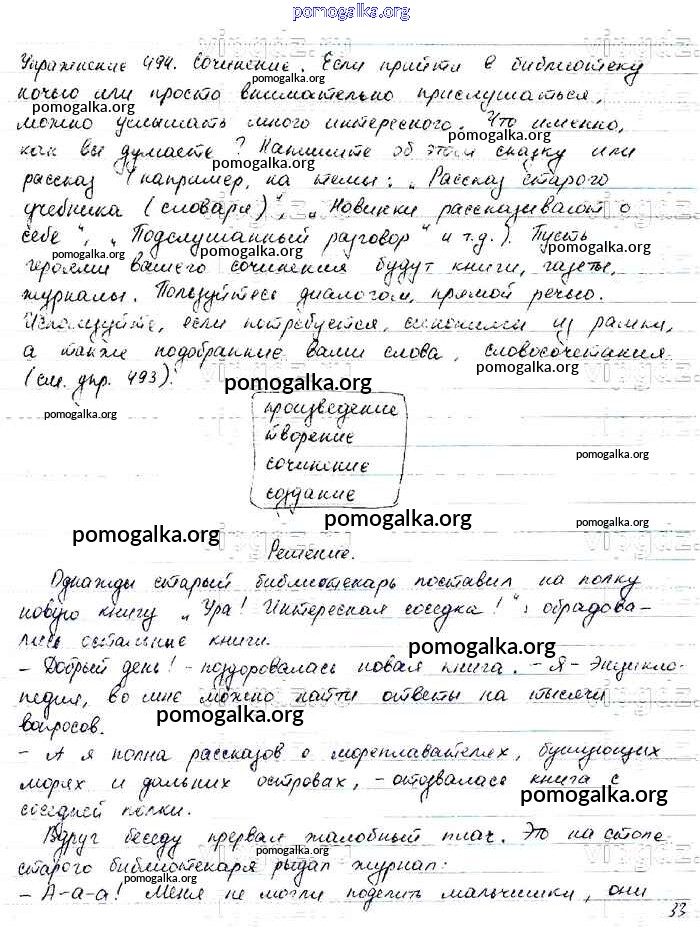 pomogalka.org
Упражнение 494. Сочинение. Если прийти в библиотеку
pomogalka.org
ночью или просто внимательно прислушаться,
pomogalka.org
можно услышать много интересного. Что именно,
pomogalka.org
как вы думаете? Напишите об этом сказку или
рассказ (например, на темы: „Рассказ старого
pomogalka.org
учебника (словаря)", „Новинки рассказывают о
себе", „Подслушанный разговор" и т.д.). Пусть
pomogalka.org
героями вашего сочинения будут книги, газеты,
журналы. Пользуйтесь диалогом, прямой речью.
Используйте, если потребуется, синонимы из рамки,
а также подобранные вами слова, словосочетания
pomogalka.org
(см. упр. 493).
pomogalka.org
произведение
pomogalka.org
творение
pomogalka.org
сочинение
создание
pomogalka.org
pomogalka.org
Решение.
Однажды старый библиотекарь поставил на полку
новую книгу „Ура! Интересная соседка!": обрадова-
лись остальные книги.
pomogalka.org
- Добрый день! - поздоровалась новая книга. - Я - Энцикло-
педия, во мне можно найти ответы на тысячи
pomogalka.org
вопросов.
- А я полна рассказов о мореплавателях, бушующих
морях и дальних островах, - отозвалась книга с
pomogalka.org
соседней полки.
Вдруг беседу прервал жалобный плач. Это на столе
pomogalka.org
старого библиотекаря рыдал журнал:
pomogalka.org
- А-а-а! Меня не могли поделить мальчишки, они
33